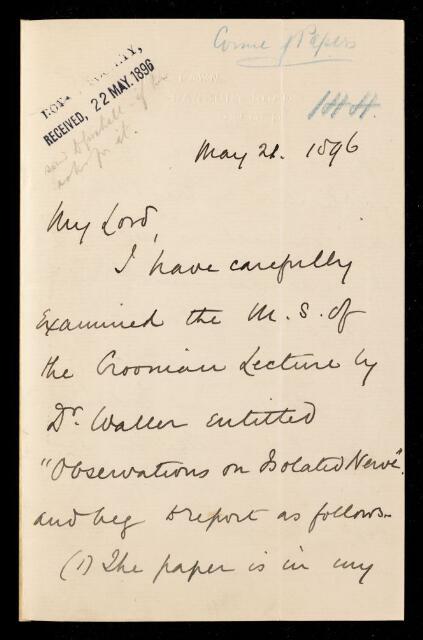 Comee of Papers
ROYAL SOCIETY,
RECEIVED, 22 MAY. 1896
for it.
May 21. 1896
My Lord,
I have carefully
examined the M.S. of
the Croonian Lecture by
Dr. Waller entitled
"Observations on Isolated Nerve".
and beg to report as follows-
(1) The paper is in my